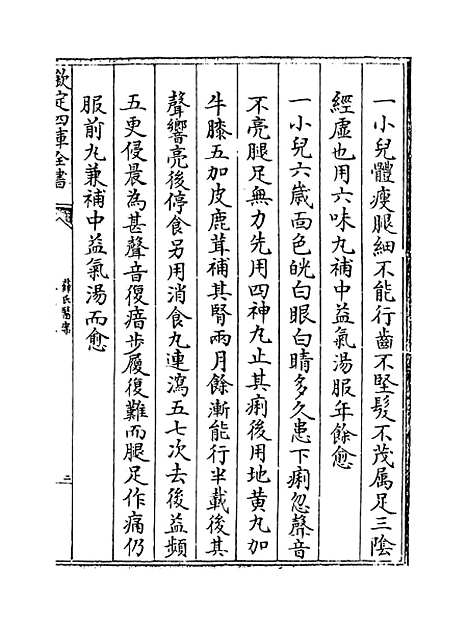 一小兒體瘦腿細不能行齒不堅髮不茂属足三陰
經虛也用六味丸補中益氣湯服年餘愈
一小兒六歲面色㿠白眼白睛多久患下痢忽聲音
不亮腿足無力先用四神丸止其痢後用地黄丸加
牛膝五加皮鹿茸補其腎兩月餘漸能行半載後其
聲響亮後停食另用消食丸連瀉五七次去後益頻
五更侵晨為甚聲音復瘖步履復難而腿足作痛仍
服前丸兼補中益氣湯而愈
欽定四庫全書
薛氏醫案
二